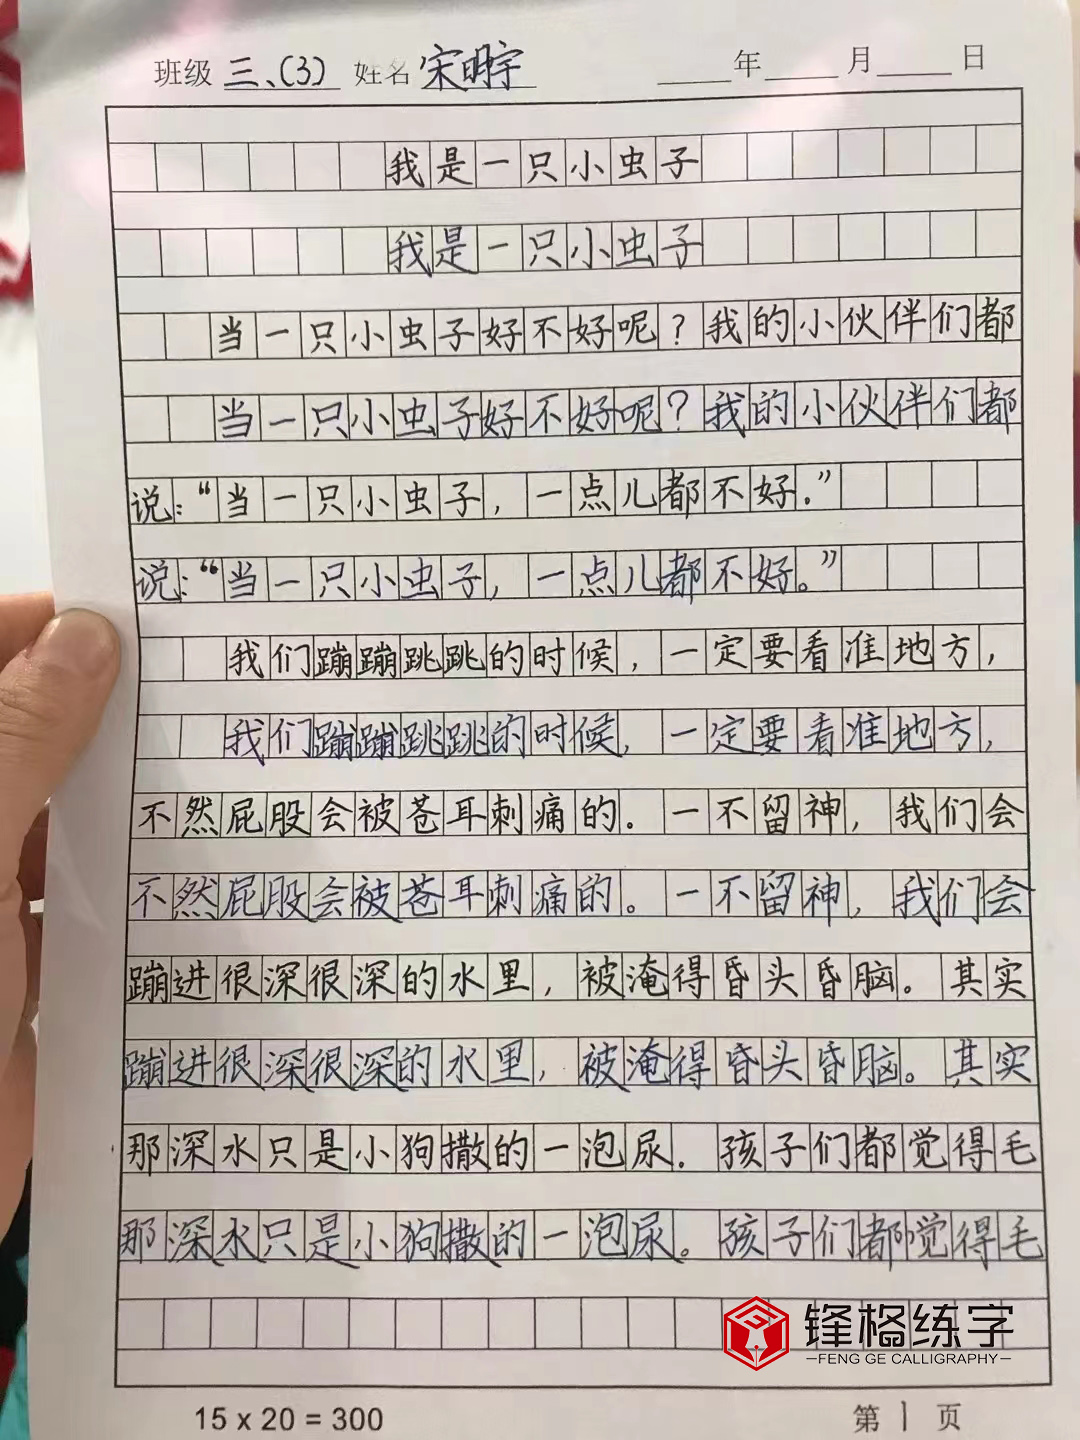 班级 三、(3) 姓名 宋明宇 年 月 日
我是一只小虫子
我是一只小虫子
当一只小虫子好不好呢？我的小伙伴们都
当一只小虫子好不好呢？我的小伙伴们都
说：“当一只小虫子，一点儿都不好.”
说：“当一只小虫子，一点儿都不好。”
我们蹦蹦跳跳的时候，一定要看准地方，
我们蹦蹦跳跳的时候，一定要看准地方，
不然屁股会被苍耳刺痛的.一不留神，我们会
不然屁股会被苍耳刺痛的。一不留神，我们会
蹦进很深很深的水里，被淹得昏头昏脑。其实
蹦进很深很深的水里，被淹得昏头昏脑。其实
那深水只是小狗撒的一泡尿.孩子们都觉得毛
那深水只是小狗撒的一泡尿。孩子们都觉得毛
锋格练字
FENG GE CALLIGRAPHY
15 x 20 = 300 第 1 页